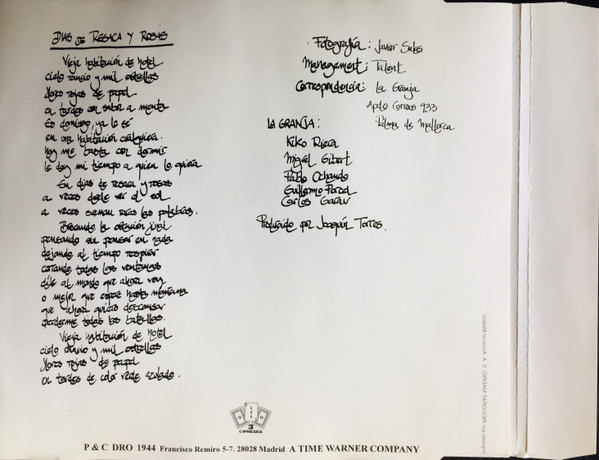 DIAS DE RESACA Y ROSAS
Vieja habitación de hotel
cielo rancio y mil estrellas
flores rojas de papel
en tardes con sabor a menta
Es domingo, ya lo sé
en una habitación cualquiera.
Hoy me basta con dormir
le doy mi tiempo a quien lo quiera
En días de resaca y rosas
a veces duele ver el sol
a veces suenan raras las palabras.
Buscando la estación
pensando sin pensar en nada
dejando al tiempo respirar
cerrando todas las ventanas
dile al mundo que ahora voy
o mejor que espere hasta mañana
que ahora quiero descansar
perderme todas las batallas.
Vieja habitación de hotel
cielo rancio y mil estrellas
flores rojas de papel
en tardes de color verde azulado.
Fotografía: Javier Salas
Management: Talent
Correspondencia: La Granja
Apdo Correos 933
Palma de Mallorca
LA GRANJA:
Kiko Riera
Miguel Gibert
Pablo Ochando
Guillermo Porcel
Carlos Garau
Producido por Joaquín Torres.
3
CIPRESES
P & C DRO 1944 Francisco Remiro 5-7. 28028 Madrid A TIME WARNER COMPANY